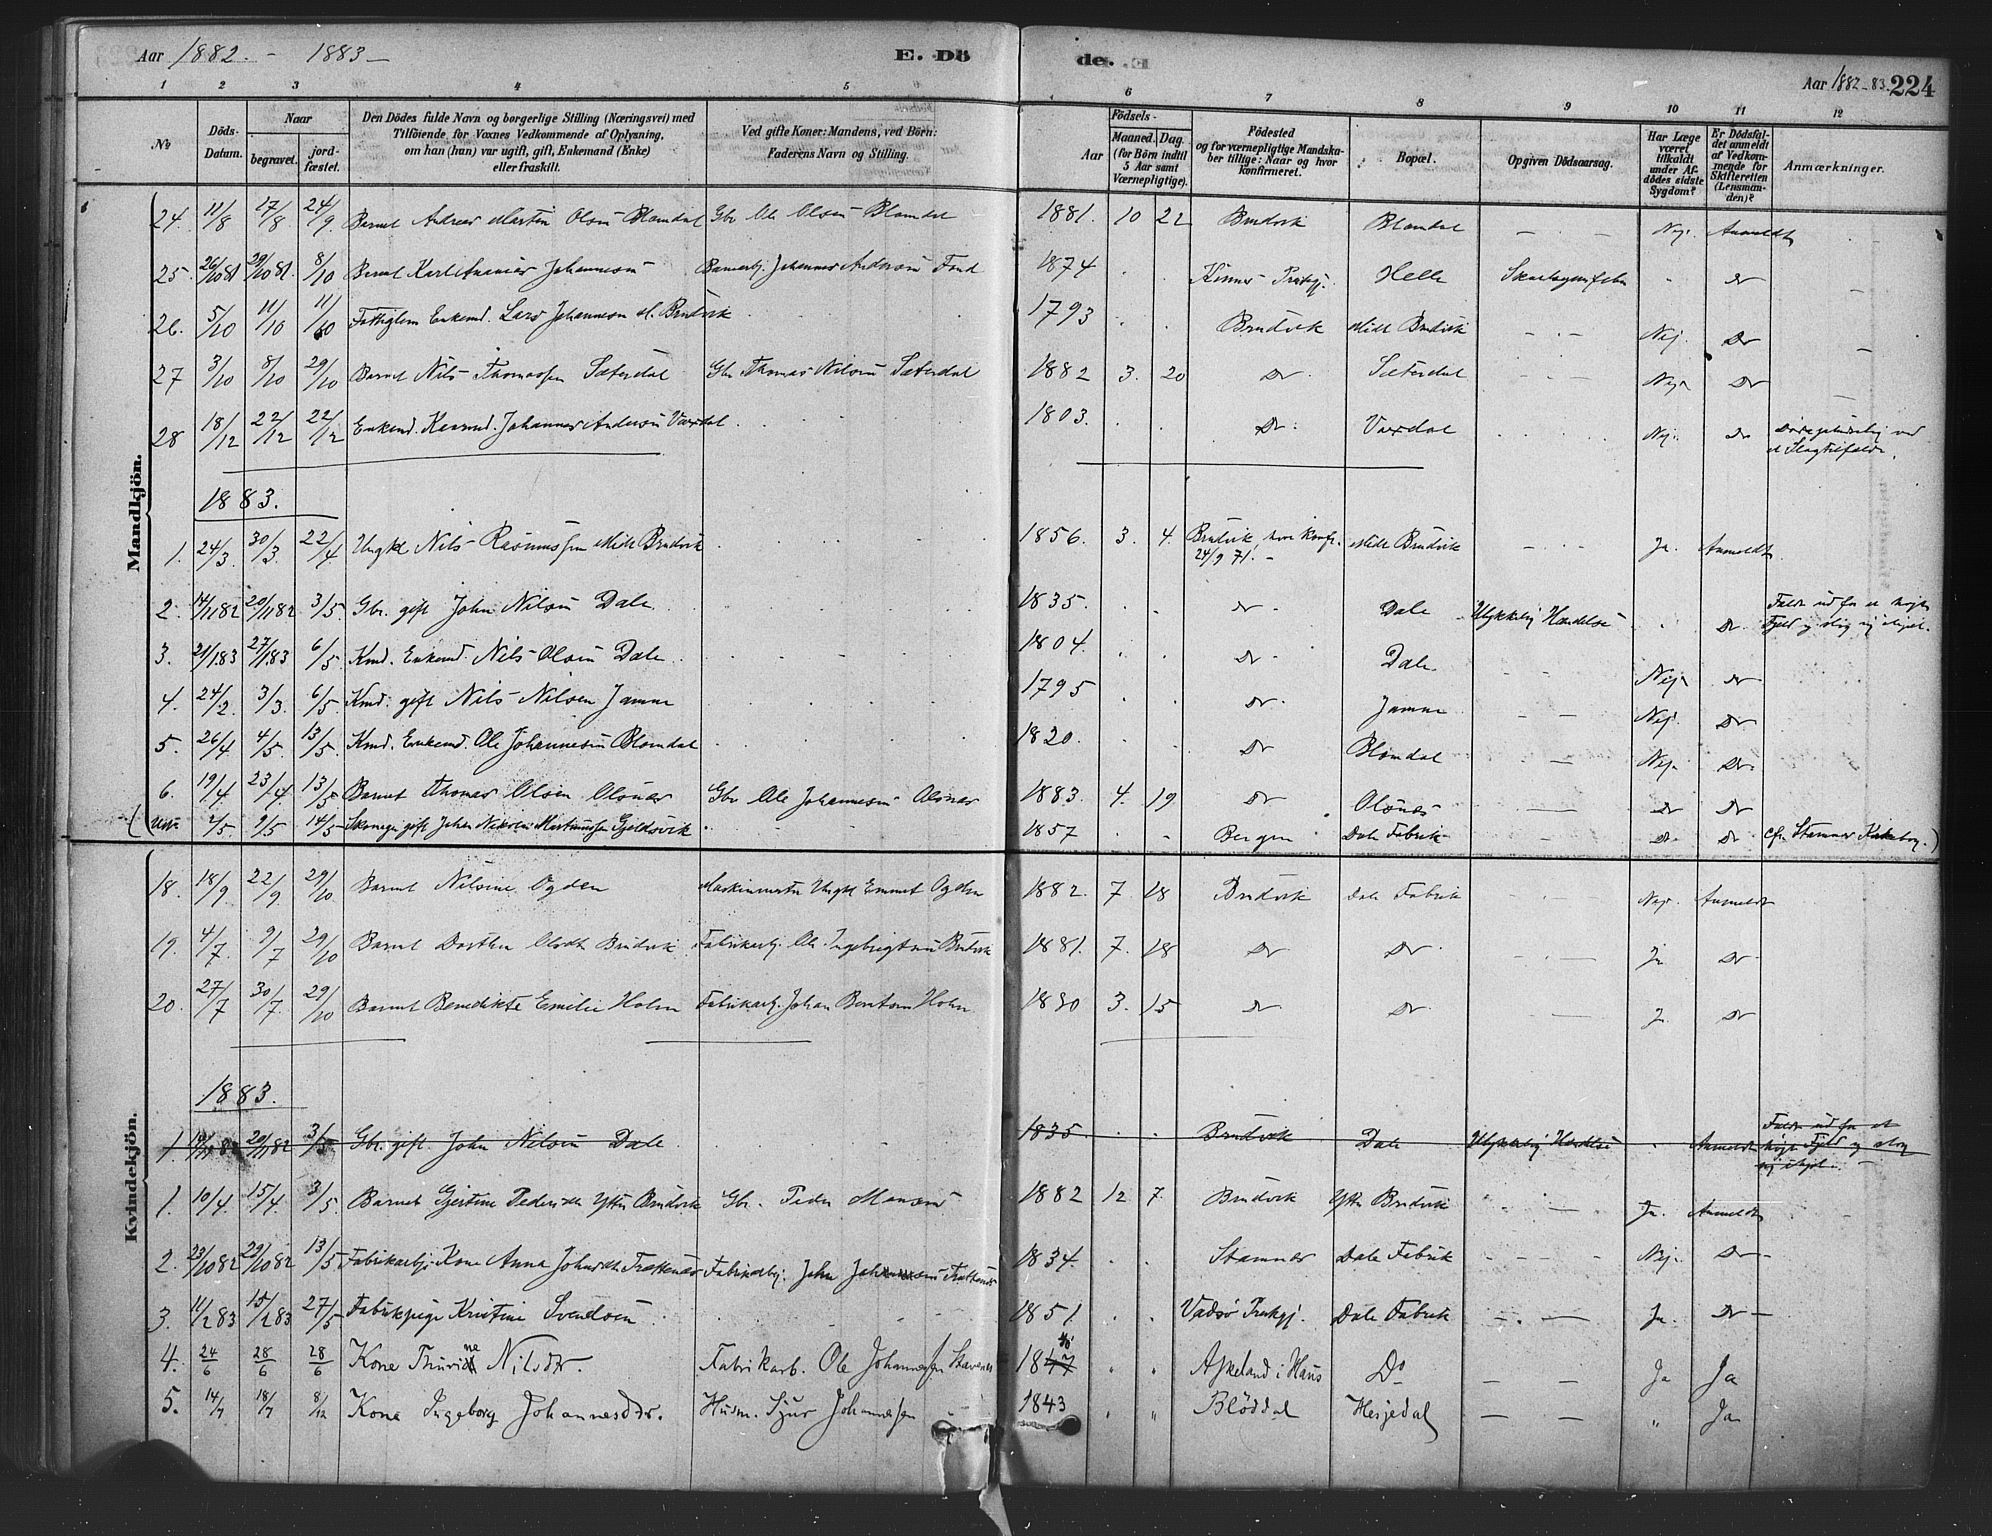 Aar 1882. - 1883 -
E. Dö
de.
Aar 1882-83. 224
1 2 3 4 5 6 7 8 9 10 11 12
№
Döds-Datum.
Naar
begravet.
jord-fæstet.
Den Dödes fulde Navn og borgerlige Stilling (Næringsvei) med
Tilföiende, for Voxnes Vedkommende af Oplysning,
om han (hun) var ugift, gift, Enkemand (Enke)
eller fraskilt.
Ved gifte Koner: Mandens, ved Börn:
Faderens Navn og Stilling.
Födsels-
Aar
Maaned. Dag.
(for Börn indtil
5 Aar samt
Værnepligtige).
Födested
og for værnepligtige Mandska-
ber tillige: Naar og hvor
konfirmeret.
Bopæl.
Opgiven Dödsaarsag.
Har Læge
været
tilkaldt
under Af-
dödes sidste
Sygdom?
Er Dödsfal-
det anmeldt
af Vedkom-
mende for
Skifteretten
(Lensman-
den)?
Anmærkninger.
Mandkjön.
24. 11/8 17/8 24/9 Barnet Andreas Martin Olsen Blomdal Gbr Ole Olsen Blomdal 1881. 10 22 Bruvik Blomdal - . - Nej. Anmeldt
25. 26/10 81 29/10 81. 8/10 Barnet Karl Ananias Johannesen Johannes Andersen 1874 . . Kinns Prstgj. Helle Dr
26. 5/10 11/10 11/10 Enkemd. Lars Johannesen M. Bruvik 1793 . . Bruvik Midt Bruvik - . - Nej. Dr
27 3/10 8/10 29/10 Barnet Nils Thomassen Sæterdal Gbr Thomas Nilsen Sæterdal 1882 3. 20 Dr. Sæterdal - Nej. Dr
28 18/12 22/12 22/12 Enkemd. Kaarmd. Johannes Andersen Vaxdal 1803. . . Dr. Vaxdal Nej. Dr ved
et Slagtilfælde.
1883.
1. 24/3 30/3 22/4 Ungkl Nils Rasmussen Midt Bruvik 1856. 3. 4. Bruvik, hvor Konfr.
24/9 71. - Midt Bruvik - . - Ja. Anmeldt
2. 14/11 82 20/11 82 3/5. Gbr. gift John Nilsen Dale. 1835. . . Dr. Dale Ulykkelig Hændelse . Dr. Faldt ud fra et højt
Fjeld og slog sig ihjel.
3. 21/1 83 27/1 83 6/5 Kmd. Enkemd. Nils Olsen Dale 1804. . . Dr. Dale. Nej. Dr
4. 24/2. 3/3. 6/5. Kmd. gift Nils Nilsen Jamne 1795 . . Dr. Jamne - - Nej. Dr
5. 26/4 4/5. 13/5. Kmd. Enkemd. Ole Johannesen Blomdal 1820. Dr Blomdal - - Nej. Dr.
6. 19/4 23/4 13/5 Barnet Thomas Olsen Olsnes Gbr Ole Johannesen Olsnes 1883. 4. 19 Dr Olsnes - Dr Dr
2/5 9/5 14/5 gift Johan Nikolai Martinussen Gjeldsvik 1857 . . Bergen Dale Fabrik - Dr. Dr cfr. Stamnes Kirkebog.)
Kvindekjön.
18. 18/9 22/9 29/10 Barnet Nilsine Ogden Maskinmester Ungkl Emmet Ogden 1882. 7 18 Bruvik Dale Fabrik Nej. Anmeldt
19. 4/7. 9/7 29/10 Barnet Dorthea Olsdt Bruvik Fabrikarbj. Ole Ingebrigtsen Bruvik 1881. 7. 18 Dr Dr. Ja Dr.
20. 27/7 30/7. 29/10 Barnet Benedikte Emilie Holm Fabrikarbj. Johan Holm. 1880 3. 15 Dr Dr. Ja Dr
1883.
1. 14/11 82 20/11 82 3/5. Gbr. gift John Nilsen Dale 1835. . . Bruvik Dale Ulykkelig Hændelse . Anmeldt Faldt ud fra et
højt Fjeld og slog
sig ihjel. -
1. 10/4. 15/4. 3/5. Barnet Gjertine Pedersdtr Ytre Bruvik Gbr. Peder Monsen 1882 12 7. Bruvik Ytre Bruvik Ja. Anmeldt
2. 23/10 82 29/10 82 13/5 Fabrikarbjs. Kone Anna Johnsdtr Fabrikarbj. John 1834. . . Stamnes Dale Fabrik - - - Nej. Dr -
3. 11/2 83 15/2 83 27/5 Fabrikpige Kristine Svendsen 1851. . . Vadsø Prstgj. Dale Fabrik - . - Ja. Dr -
4. 24/6 28/6 28/6 Kone Thurine Nilsdtr. Fabrikarb. Ole Johannessen Stavenes 1847 " " Askeland i Haus Do - - Ja Ja
5. 14/7 18/7 8/12 Kone Ingeborg Johannesdtr. Husm. Sjur Johannessen 1843 " " Bløddal Hesjedal - - " Ja